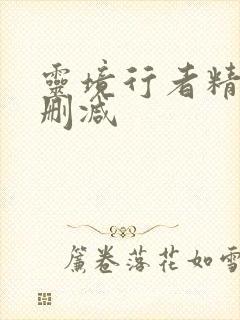 靈境行者精
刪减
簾卷落花如雪